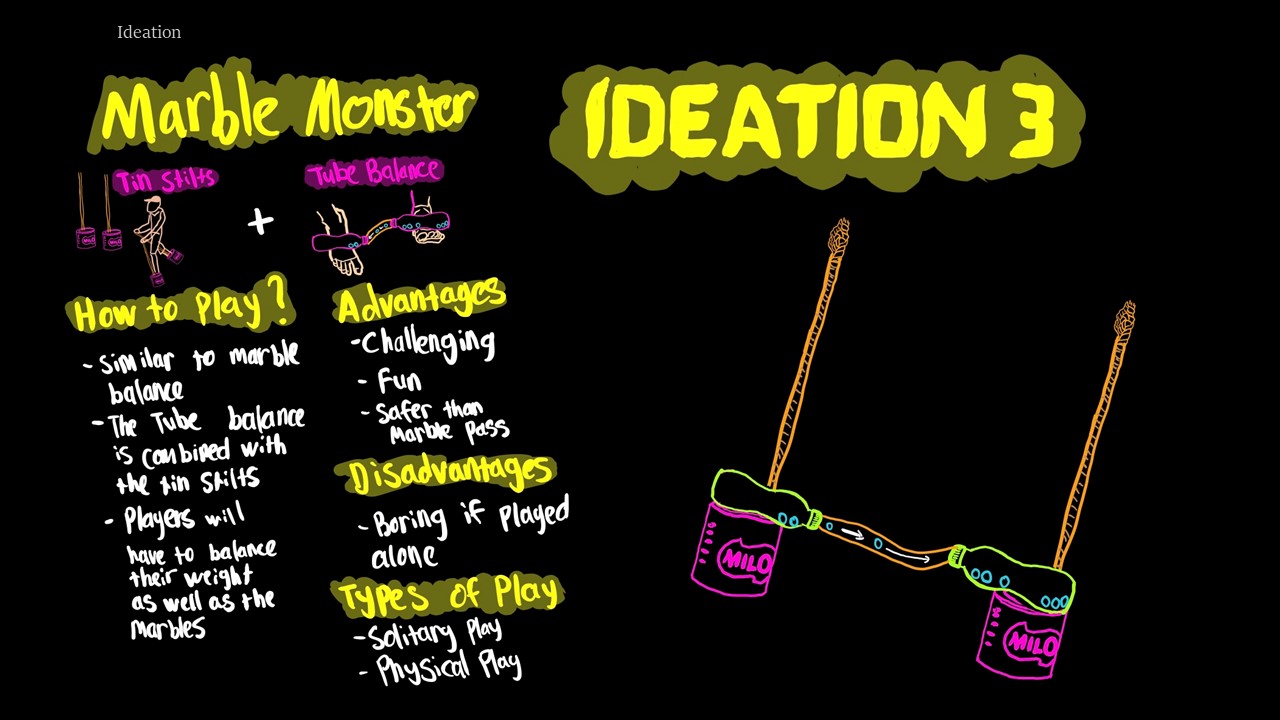 Ideation
Marble Monster
IDEATION 3
Tin Stilts
Tube Balance
+
MILO
MILO
How to Play?
- Similar to marble
balance
- The Tube balance
is combined with
the tin stilts
- Players will
have to balance
their weight
as well as the
Marbles
Advantages
- Challenging
- Fun
- Safer than
Marble Pass
Disadvantages
- Boring if played
alone
Types of Play
- Solitary Play
- Physical Play
MILO
MILO